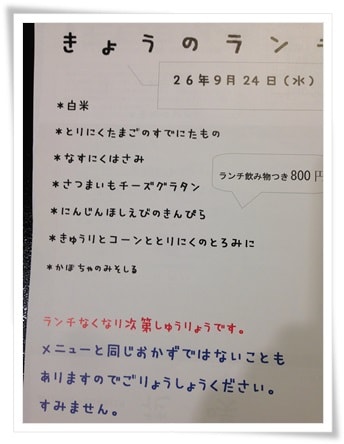 きょうのランチ
26年9月24日(水)
*白米
*とりにくたまごのすでにたもの
*なすにくはさみ
*さつまいもチーズグラタン
ランチ飲み物つき800円
*にんじんほしえびのきんぴら
*きゅうりとコーンととりにくのとろみに
*かぼちゃのみそしる
ランチなくなり次第しゅうりょうです。
メニューと同じおかずではないことも
ありますのでごりょうしょうください。
すみません。